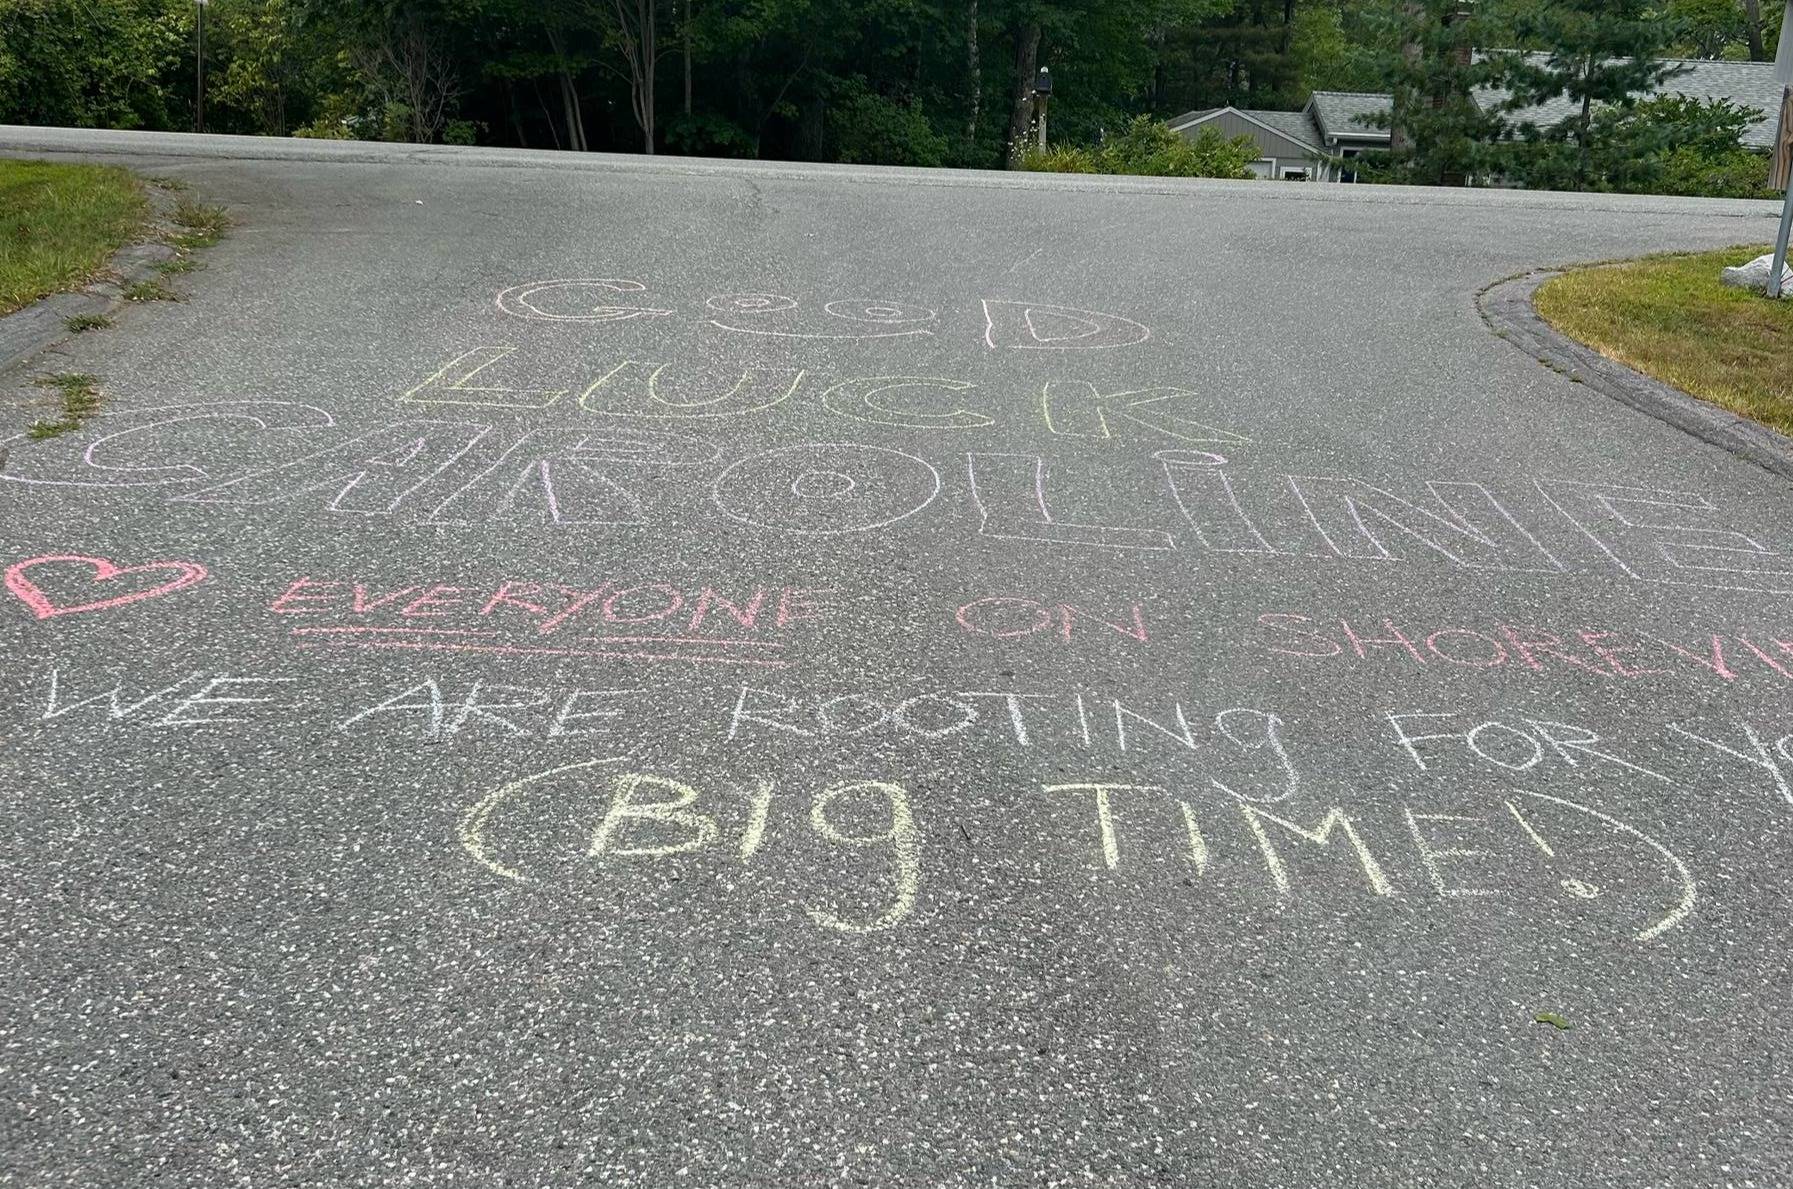 GOOD
LUCK
CAROLiNE
♥ EVERYONE ON SHOREVI
WE ARE ROOTINg FOR YO
(BIg TIME!)